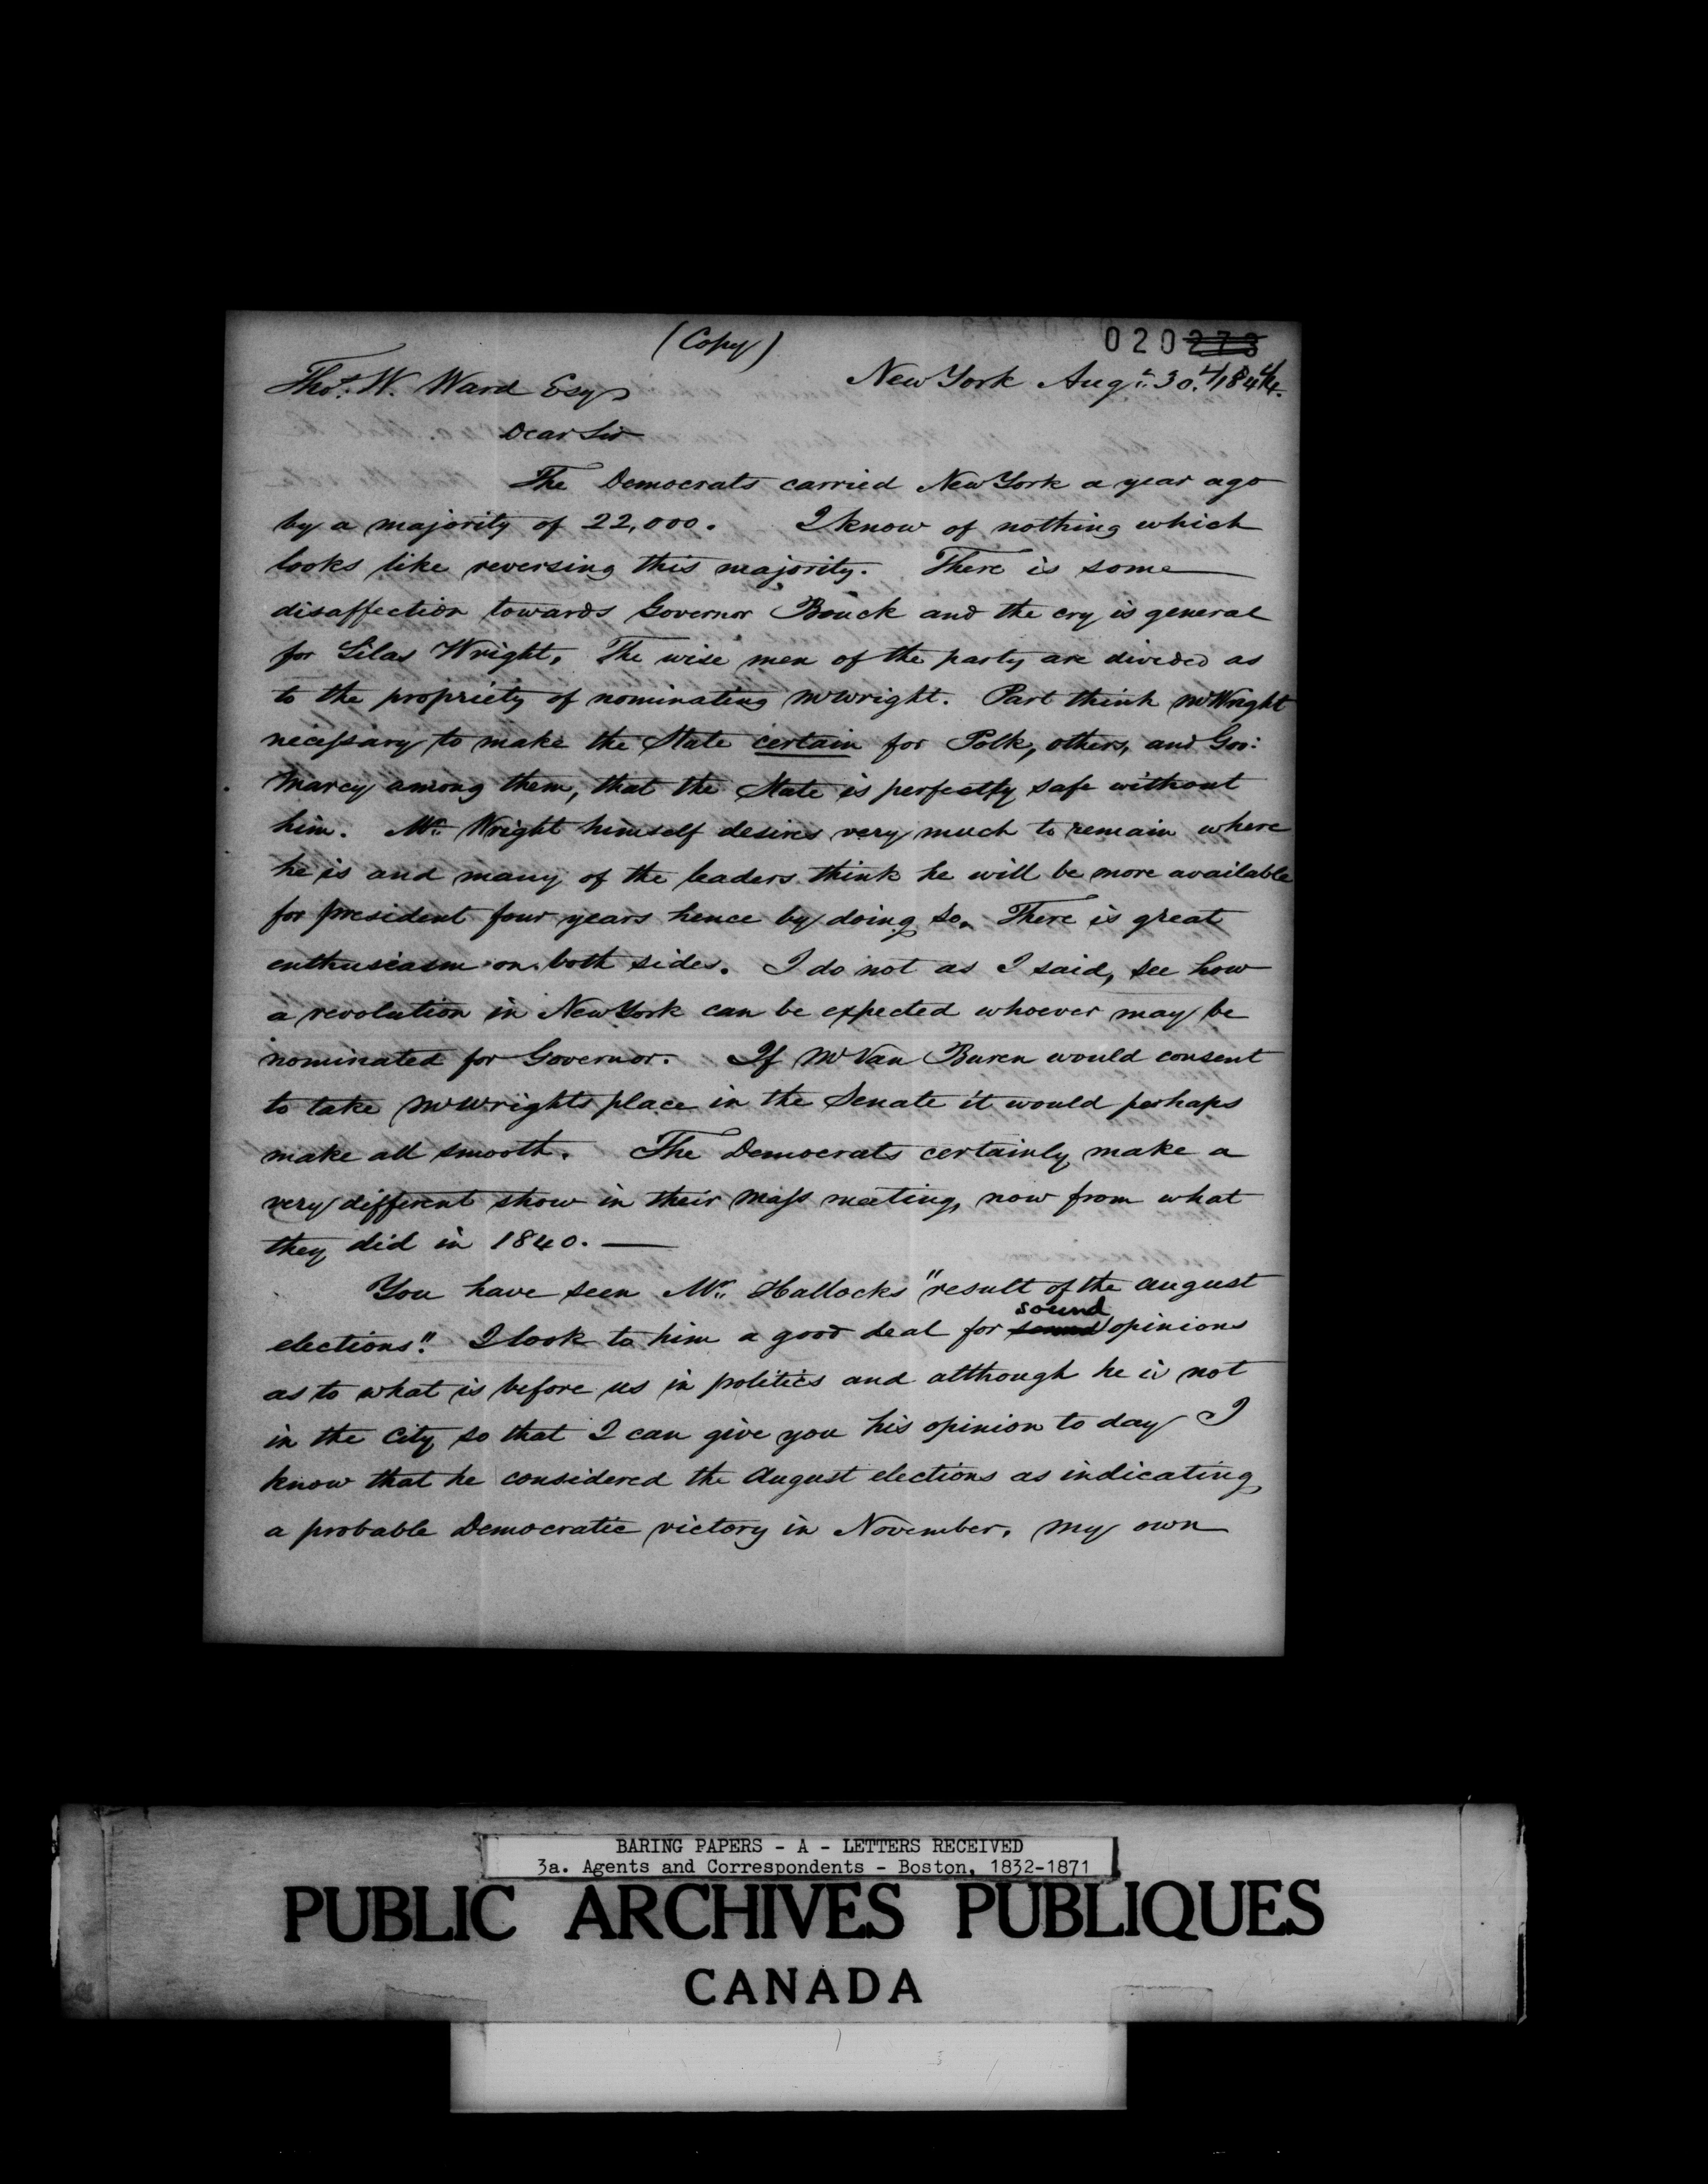 (Copy)
020273
New York Augt. 30th/1844.
Thos. W. Ward Esq
Dear Sir
The Democrats carried New York a year ago
by a majority of 22,000. I know of nothing which
looks like reversing this majority. There is some
disaffection towards Governor Bouck and the cry is general
for Silas Wright. The wise men of the party are divided as
to the propriety of nominating Mr Wright. Part think Mr Wright
necessary to make the State certain for Polk, others, and Gov:
Marcy among them, that the State is perfectly safe without
him. Mr. Wright himself desires very much to remain where
he is and many of the leaders think he will be more available
for president four years hence by doing so. There is great
enthusiasm on both sides. I do not as I said, see how
a revolution in New York can be expected whoever may be
nominated for Governor. If Mr Van Buren would consent
to take Mr Wrights place in the Senate it would perhaps
make all smooth. The Democrats certainly make a
very different show in their mass meeting, now from what
they did in 1840. —
You have seen Mr. Hallocks "result of the august
elections". I look to him a good deal for sound opinions
as to what is before us in politics and although he is not
in the City so that I can give you his opinion to day I
know that he considered the August elections as indicating
a probable Democratic victory in November. My own
BARING PAPERS - A - LETTERS RECEIVED
3a. Agents and Correspondents - Boston, 1832-1871
PUBLIC ARCHIVES PUBLIQUES
CANADA